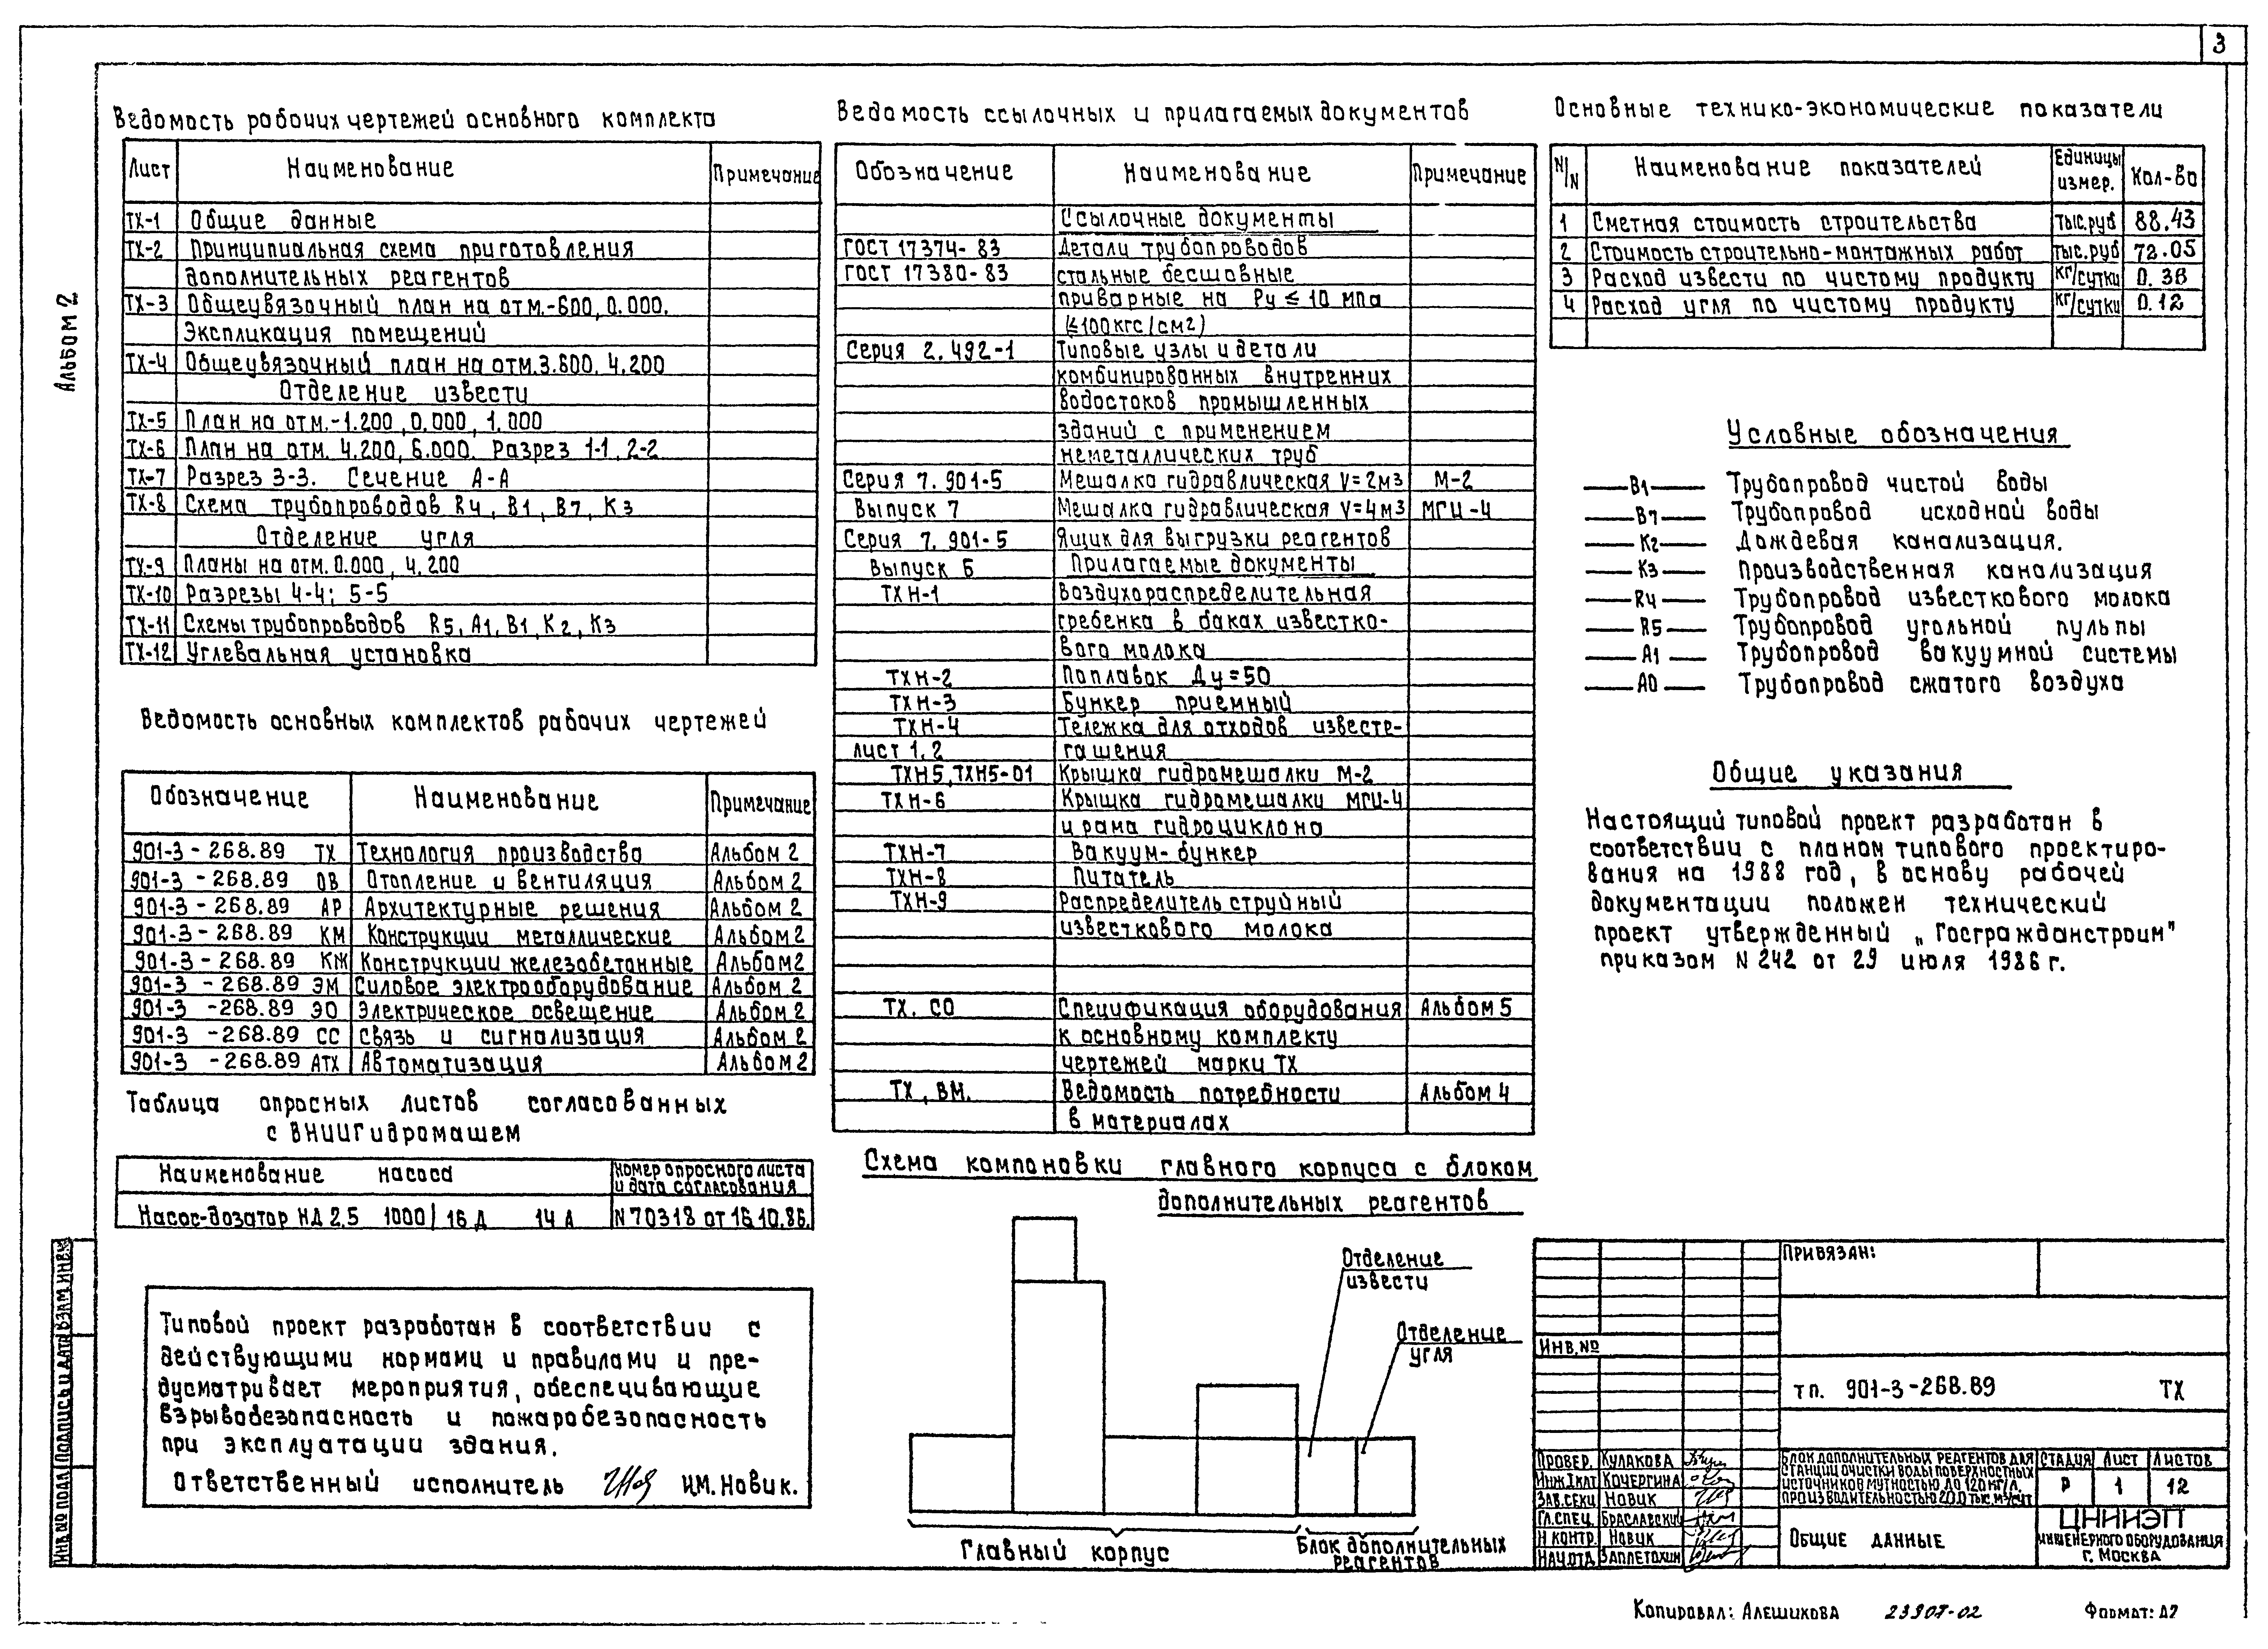 3
Альбом 2
Ведомость рабочих чертежей основного комплекта
Лист Наименование Примечание
ТХ-1 Общие данные
ТХ-2 Принципиальная схема приготовления
дополнительных реагентов
ТХ-3 Общеувязочный план на отм.-600, 0.000.
Экспликация помещений
ТХ-4 Общеувязочный план на отм.3.600. 4.200
Отделение извести
ТХ-5 План на отм.-1.200, 0.000, 1.000
ТХ-6 План на отм. 4.200, 6.000. Разрез 1-1, 2-2
ТХ-7 Разрез 3-3. Сечение А-А
ТХ-8 Схема трубопроводов R4, В1, В7, К3
Отделение угля
ТХ-9 Планы на отм. 0.000, 4.200
ТХ-10 Разрезы 4-4; 5-5
ТХ-11 Схемы трубопроводов R5, А1, В1, К2, К3
ТХ-12 Углевальная установка
Ведомость основных комплектов рабочих чертежей
Обозначение Наименование Примечание
901-3-268.89 ТХ Технология производства Альбом 2
901-3-268.89 ОВ Отопление и вентиляция Альбом 2
901-3-268.89 АР Архитектурные решения Альбом 2
901-3-268.89 КМ Конструкции металлические Альбом 2
901-3-268.89 КЖ Конструкции железобетонные Альбом 2
901-3-268.89 ЭМ Силовое электрооборудование Альбом 2
901-3-268.89 ЭО Электрическое освещение Альбом 2
901-3-268.89 СС Связь и сигнализация Альбом 2
901-3-268.89 АТХ Автоматизация Альбом 2
Таблица опросных листов согласованных
с ВНИИГидромашем
Наименование насоса Номер опросного листа
и дата согласования
Насос-дозатор НД 2.5 1000/16 Д 14 А N 70318 от 16.10.86.
Типовой проект разработан в соответствии с
действующими нормами и правилами и пре-
дусматривает мероприятия, обеспечивающие
взрывобезопасность и пожаробезопасность
при эксплуатации здания.
Ответственный исполнитель И.М. Новик.
Ведомость ссылочных и прилагаемых документов
Обозначение Наименование Примечание
Ссылочные документы
ГОСТ 17374-83 Детали трубопроводов
ГОСТ 17380-83 стальные бесшовные
приварные на Ру ≤ 10 мпа
(≤100 кгс/см2)
Серия 2.492-1 Типовые узлы и детали
комбинированных внутренних
водостоков промышленных
зданий с применением
неметаллических труб
Серия 7.901-5 Мешалка гидравлическая V=2м3 М-2
Выпуск 7 Мешалка гидравлическая V=4м3 МГЦ-4
Серия 7.901-5 Ящик для выгрузки реагентов
Выпуск 6 Прилагаемые документы
ТХН-1 Воздухораспределительная
гребенка в баках известко-
вого молока
ТХН-2 Поплавок Ду=50
ТХН-3 Бункер приемный
ТХН-4 Тележка для отходов известе-
лист 1,2 гашения
ТХН5, ТХН5-01 Крышка гидромешалки М-2
ТХН-6 Крышка гидромешалки МГЦ-4
и рама гидроциклона
ТХН-7 Вакуум-бункер
ТХН-8 Питатель
ТХН-9 Распределитель струйный
известкового молока
ТХ. СО Спецификация оборудования Альбом 5
к основному комплекту
чертежей марки ТХ
ТХ, ВМ. Ведомость потребности Альбом 4
в материалах
Схема компоновки главного корпуса с блоком
дополнительных реагентов
Отделение
извести
Отделение
угля
Главный корпус
Блок дополнительных
реагентов
Основные технико-экономические показатели
N/N Наименование показателей Единицы измер. Кол-во
1 Сметная стоимость строительства тыс.руб 88.43
2 Стоимость строительно-монтажных работ тыс.руб 72.05
3 Расход извести по чистому продукту кг/сутки 0.36
4 Расход угля по чистому продукту кг/сутки 0.12
Условные обозначения
В1 Трубопровод чистой воды
В7 Трубопровод исходной воды
К2 Дождевая канализация.
К3 Производственная канализация
R4 Трубопровод известкового молока
R5 Трубопровод угольной пульпы
А1 Трубопровод вакуумной системы
А0 Трубопровод сжатого воздуха
Общие указания
Настоящий типовой проект разработан в
соответствии с планом типового проектиро-
вания на 1988 год, в основу рабочей
документации положен технический
проект утвержденный „Госгражданстроим"
приказом N 242 от 29 июля 1986 г.
Привязан:
Инв.№
тп. 901-3-268.89 ТХ
Провер. Кулакова
Инж.Iкат Кочергина
Зав.секц Новик
Гл.спец. Браславский
Н контр. Новик
Нач.отд. Заплетохин
Блок дополнительных реагентов для
станции очистки воды поверхностных
источников мутностью до 120 мг/л,
производительностью 20.0 тыс.м³/сут
Стадия Лист Листов
Р 1 12
Общие данные
ЦНИИЭП
инженерного оборудования
г. Москва
Инв.№ подл Подпись и дата Взам.инв.№
Копировал: Алешикова 23907-02 Формат: А2